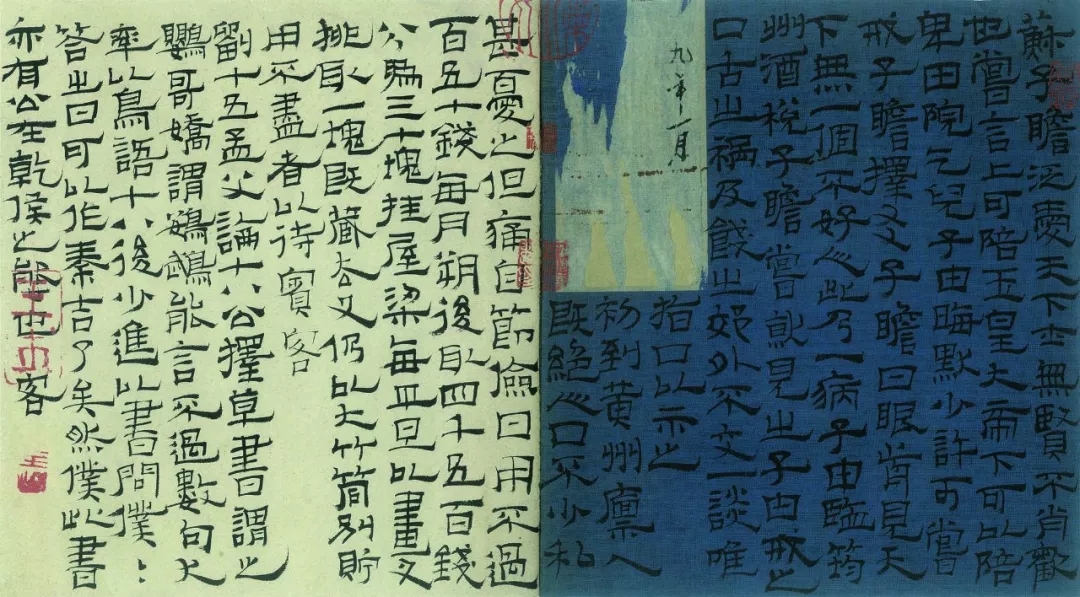 蘇子瞻泛愛天下士無賢不肖歡
也嘗言上可陪玉皇大帝下可以陪
卑田院乞兒子由晦默少許可嘗
戒子瞻擇交子瞻曰眼前見天
下無一個不好人此乃一病子由監筠
州酒稅子瞻嘗就見之子由戒之
口舌之禍及餞之郊外不交一談唯
指口以示之
九年 月
初到黃州廩入
既絕人口不少私
甚憂之但痛自節儉日用不過
百五十錢每月朔後取四千五百錢
分為三十塊挂屋梁每平旦以畫叉
挑取一塊既藏去又仍以大竹筒別貯
用不盡者以待賓客
劉十五孟父論十八公擇草書謂之
鸚哥嬌謂鸚鵡能言不過數句大
率以鳥語十八後少進以書問僕〻
答之曰可以作秦吉了矣然僕此書
亦有公在乾侯之態也 客